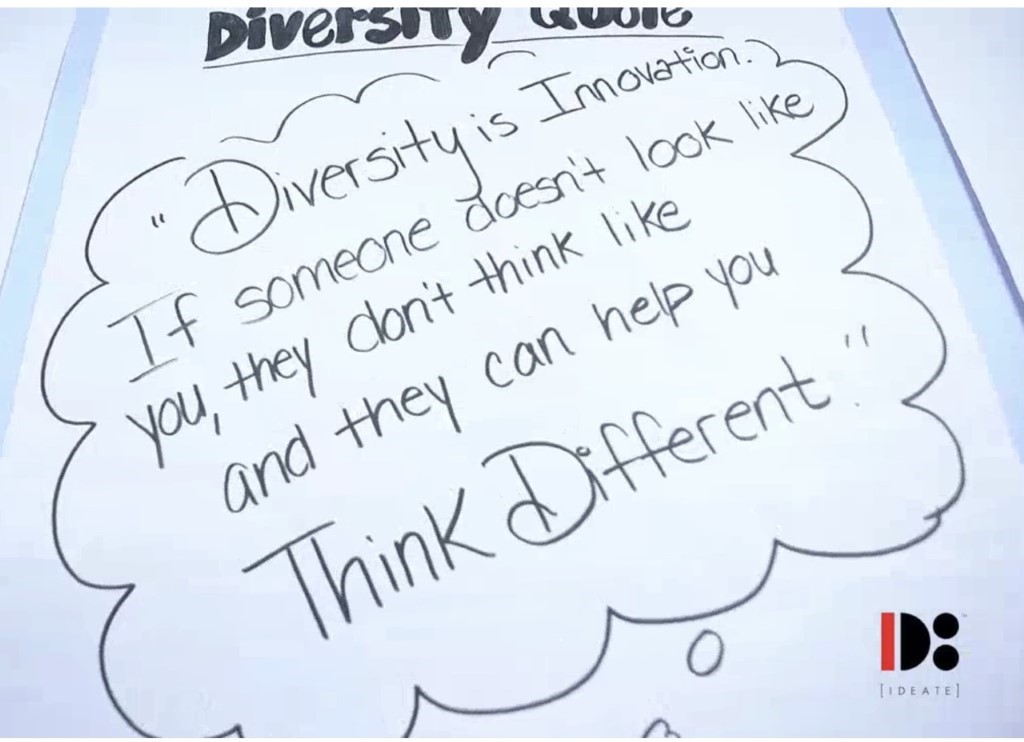 Diversity Quote
"Diversity is Innovation.
If someone doesn't look like
you, they don't think like
and they can help you
Think Different."
ID:
[IDEATE]